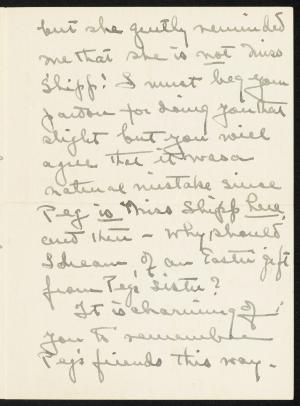 but she gently reminded
me that she is not Miss
Shipp! I must beg your
pardon for doing you that
slight but you will
agree that it was a
natural mistake since
Peg is Miss Shipp here,
and then – why should
I dream of an Easter gift
from Peg's sister?
It is charming of
you to remember
Peg's friends this way.